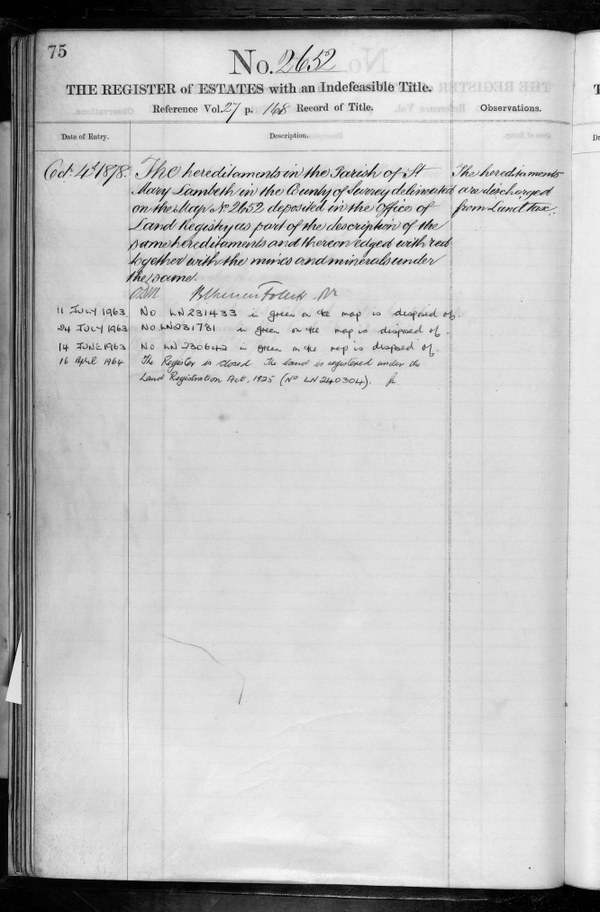 75
No. 2652
THE REGISTER of ESTATES with an Indefeasible Title.
Reference Vol. 27 p. 168 Record of Title.
Observations.
Date of Entry.
Description.
Oct. 4th 1878.
The hereditaments in the Parish of St
Mary Lambeth in the County of Surrey delineated
on the Map No 2652 deposited in the Office of
Land Registry as part of the description of the
same hereditaments and thereon edged with red
together with the mines and minerals under
the same.
The hereditaments
are discharged
from Land tax.
11 JULY 1963 No LN231433 in green on the map is disposed of.
24 JULY 1963 No LN231781 in green on the map is disposed of.
14 JUNE 1963 No LN 230642 in green on the map is disposed of.
16 April 1964 The Register is closed The land is registered under the
Land Registration Act, 1925 (No LN240304).